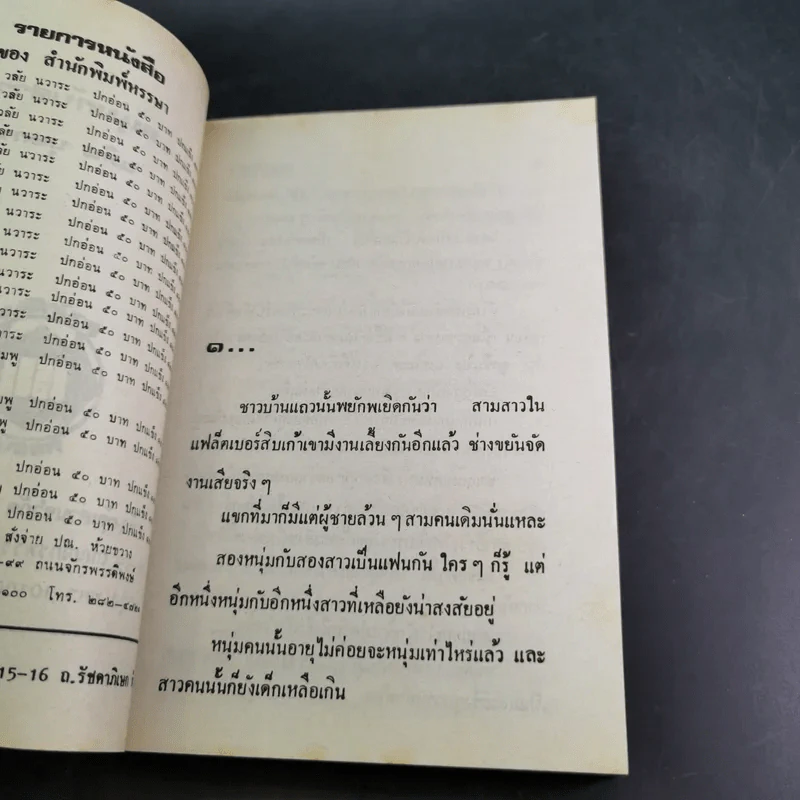 รายการหนังสือ
ของ สำนักพิมพ์หรรษา
วลัย นวาระ ปกอ่อน ๕๐ บาท ปกแข็ง
วลัย นวาระ ปกอ่อน ๕๐ บาท ปกแข็ง
วลัย นวาระ ปกอ่อน ๕๐ บาท ปกแข็ง
นวาระ ปกอ่อน ๕๐ บาท ปกแข็ง
นวาระ ปกอ่อน ๕๐ บาท ปกแข็ง
นวาระ ปกอ่อน ๕๐ บาท ปกแข็ง
นวาระ ปกอ่อน ๕๐ บาท ปกแข็ง
นวาระ ปกอ่อน ๕๐ บาท ปกแข็ง
นวาระ ปกอ่อน ๕๐ บาท ปกแข็ง
นวาระ ปกอ่อน ๕๐ บาท ปกแข็ง
ปกอ่อน ๕๐ บาท ปกแข็ง
ปกอ่อน ๕๐ บาท ปกแข็ง
ปกอ่อน ๕๐ บาท ปกแข็ง
ปกอ่อน ๕๐ บาท ปกแข็ง
ปกอ่อน ๕๐ บาท ปกแข็ง
ปกอ่อน ๕๐ บาท ปกแข็ง
ปกอ่อน ๕๐ บาท ปกแข็ง
สั่งจ่าย ปณ. ห้วยขวาง
-๙๙ ถนนจักรพรรดิพงษ์
๑๐๐ โทร. ๒๘๒-
15-16 ถ.รัชดาภิเษก
๑...
ชาวบ้านแถวนั้นพยักพเยิดกันว่า สามสาวใน
แฟล็ตเบอร์สิบเก้าเขามีงานเลี้ยงกันอีกแล้ว ช่างขยันจัด
งานเสียจริง ๆ
แขกที่มาก็มีแต่ผู้ชายล้วน ๆ สามคนเดิมนั่นแหละ
สองหนุ่มกับสองสาวเป็นแฟนกัน ใคร ๆ ก็รู้ แต่
อีกหนึ่งหนุ่มกับอีกหนึ่งสาวที่เหลือยังน่าสงสัยอยู่
หนุ่มคนนั้นอายุไม่ค่อยจะหนุ่มเท่าไหร่แล้ว และ
สาวคนนั้นก็ยังเด็กเหลือเกิน